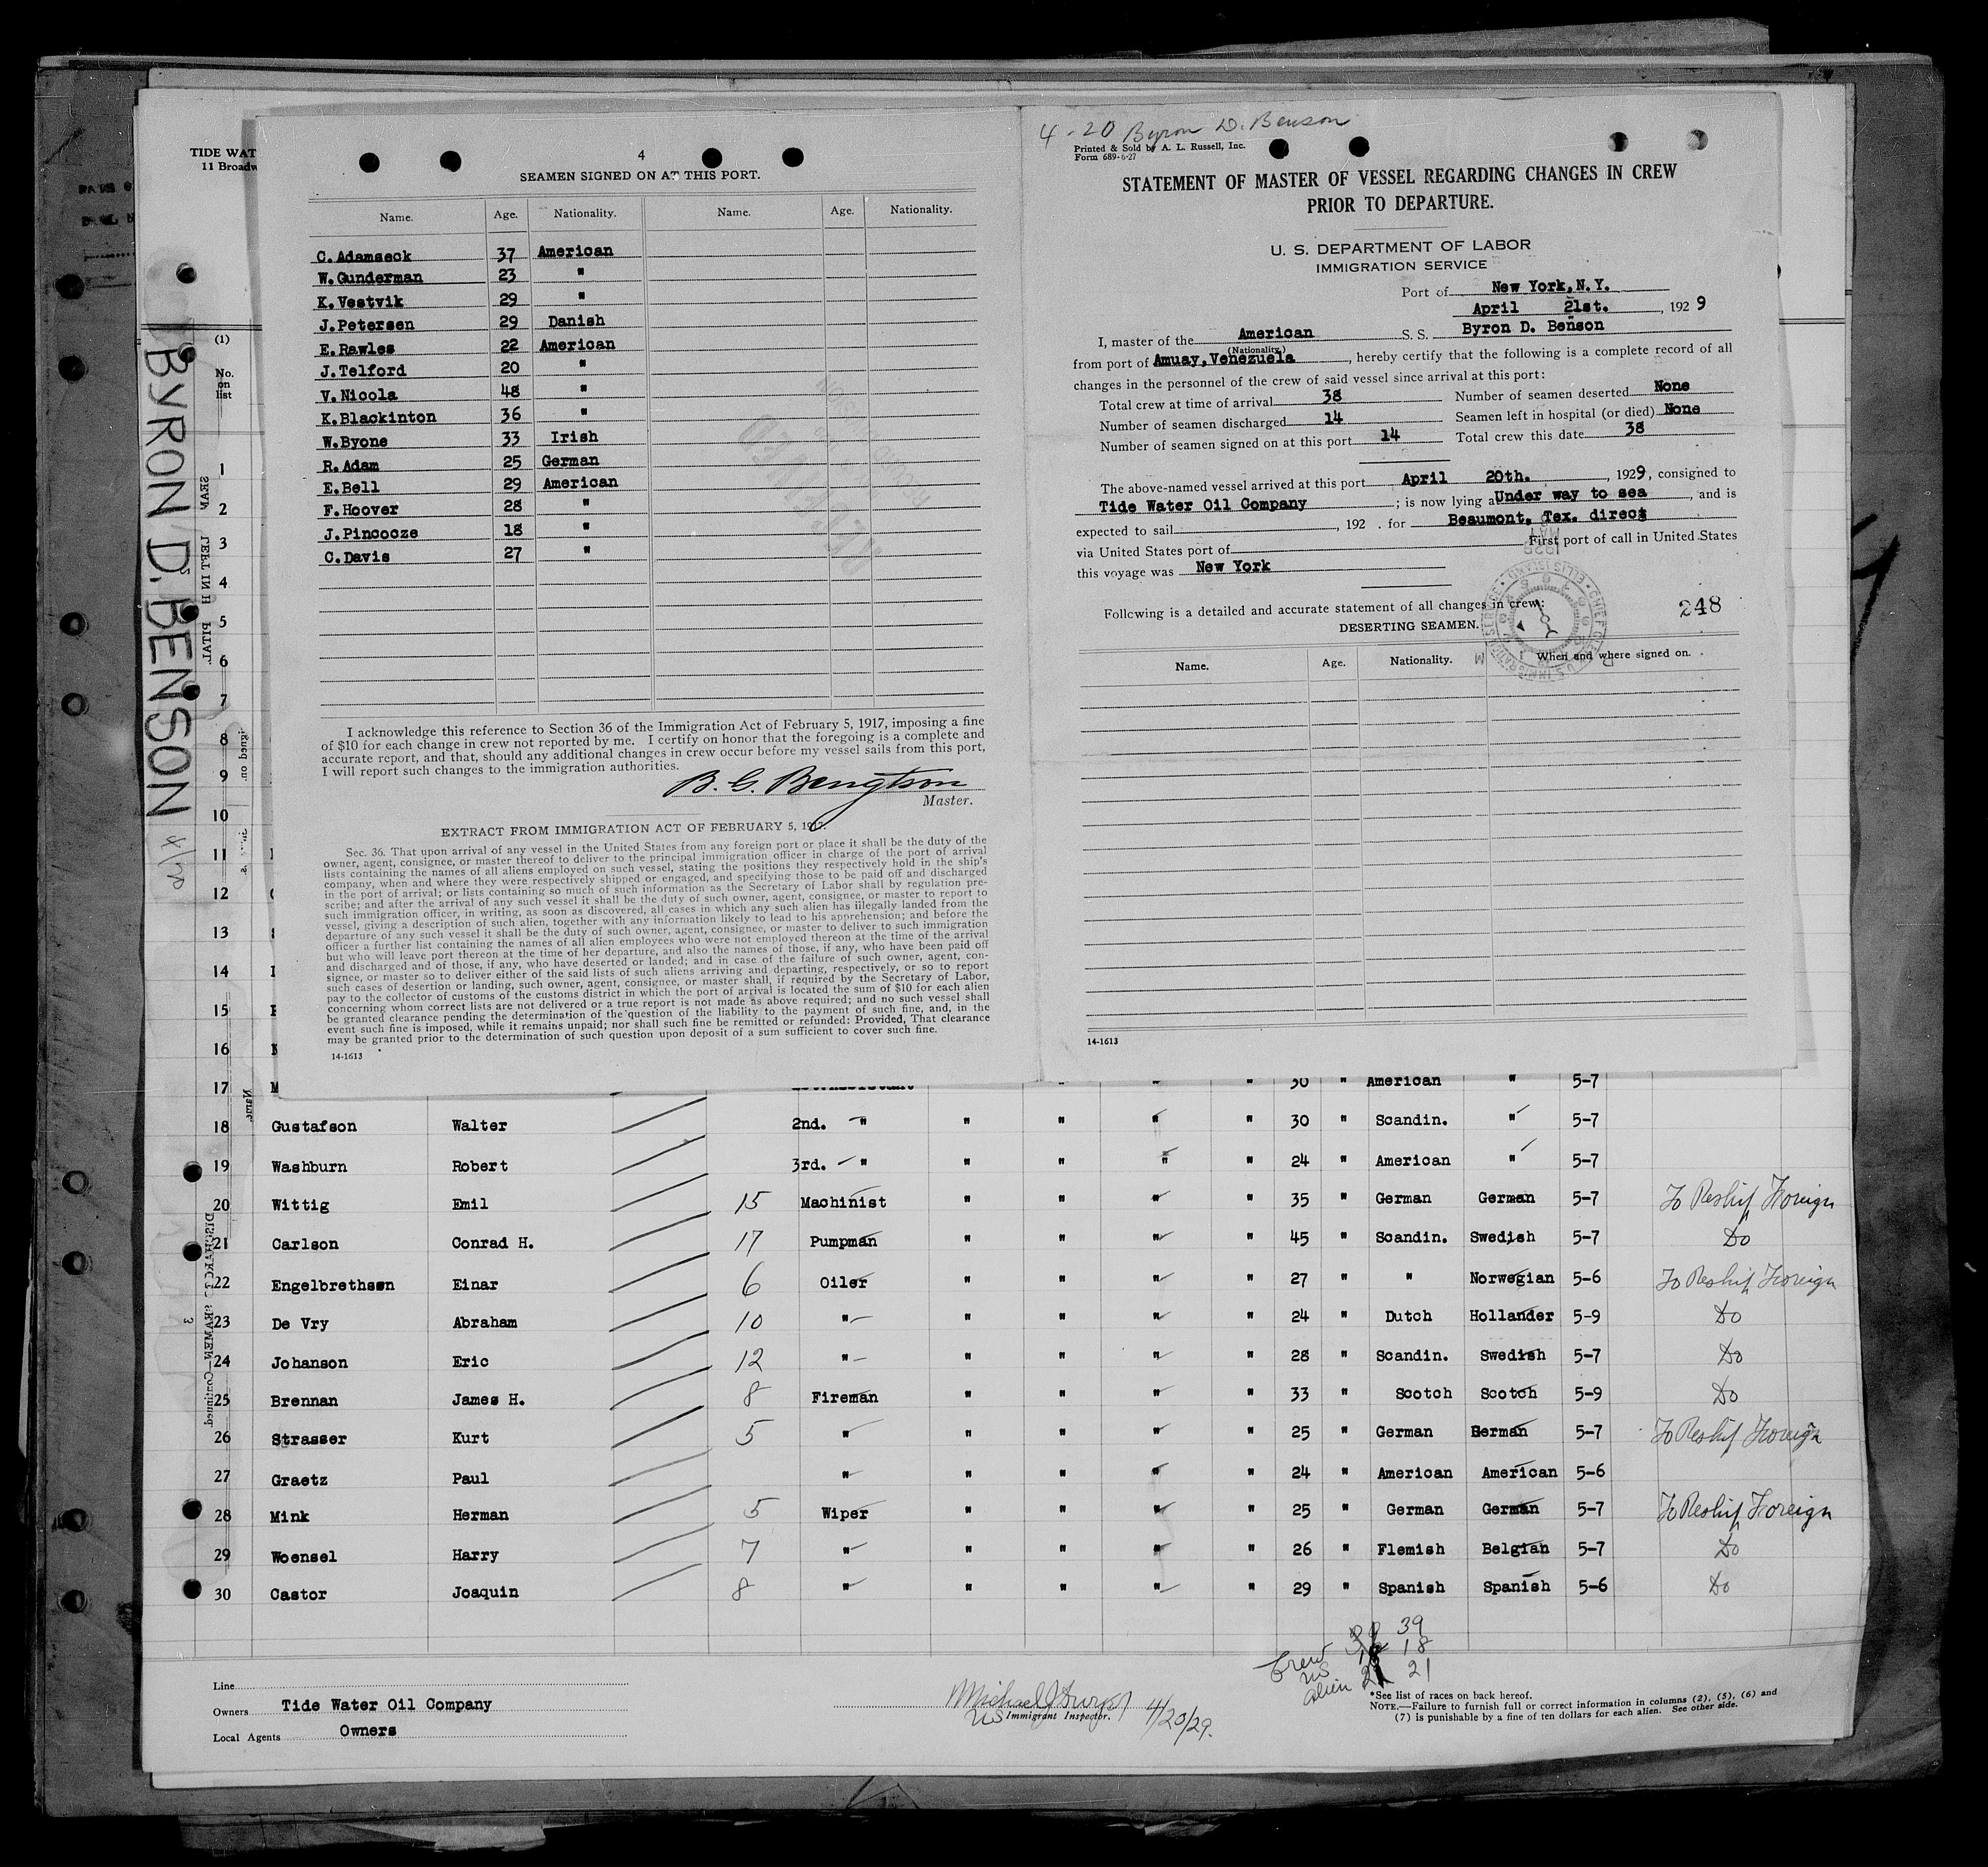 TIDE WAT
11 Broadw
BYRON D. BENSON 4/20
4
SEAMEN SIGNED ON AT THIS PORT.
Name. Age. Nationality. Name. Age. Nationality.
C. Adamseck 37 American
W. Gunderman 23 "
K. Vestvik 29 "
J. Petersen 29 Danish
E. Rawles 22 American
J. Telford 20 "
V. Nicola 48 "
K. Blackinton 36 "
W. Byone 33 Irish
R. Adam 25 German
E. Bell 29 American
F. Hoover 28 "
J. Pincocze 18 "
C. Davis 27 "
I acknowledge this reference to Section 36 of the Immigration Act of February 5, 1917, imposing a fine
of $10 for each change in crew not reported by me. I certify on honor that the foregoing is a complete and
accurate report, and that, should any additional changes in crew occur before my vessel sails from this port,
I will report such changes to the immigration authorities.
B. G. Bengtson
Master.
EXTRACT FROM IMMIGRATION ACT OF FEBRUARY 5, 1917.
Sec. 36. That upon arrival of any vessel in the United States from any foreign port or place it shall be the duty of the
owner, agent, consignee, or master thereof to deliver to the principal immigration officer in charge of the port of arrival
lists containing the names of all aliens employed on such vessel, stating the positions they respectively hold in the ship's
company, when and where they were respectively shipped or engaged, and specifying those to be paid off and discharged
in the port of arrival; or lists containing so much of such information as the Secretary of Labor shall by regulation pre-
scribe; and after the arrival of any such vessel it shall be the duty of such owner, agent, consignee, or master to report to
such immigration officer, in writing, as soon as discovered, all cases in which any such alien has illegally landed from the
vessel, giving a description of such alien, together with any information likely to lead to his apprehension; and before the
departure of any such vessel it shall be the duty of such owner, agent, consignee, or master to deliver to such immigration
officer a further list containing the names of all alien employees who were not employed thereon at the time of the arrival
but who will leave port thereon at the time of her departure, and also the names of those, if any, who have been paid off
and discharged and of those, if any, who have deserted or landed; and in case of the failure of such owner, agent, con-
signee, or master so to deliver either of the said lists of such aliens arriving and departing, respectively, or so to report
such cases of desertion or landing, such owner, agent, consignee, or master shall, if required by the Secretary of Labor,
pay to the collector of customs of the customs district in which the port of arrival is located the sum of $10 for each alien
concerning whom correct lists are not delivered or a true report is not made as above required; and no such vessel shall
be granted clearance pending the determination of the question of the liability to the payment of such fine, and, in the
event such fine is imposed, while it remains unpaid; nor shall such fine be remitted or refunded: Provided, That clearance
may be granted prior to the determination of such question upon deposit of a sum sufficient to cover such fine.
14-1613
4-20 Byron D. Benson
Printed & Sold by A. L. Russell, Inc.
Form 689-6-27
STATEMENT OF MASTER OF VESSEL REGARDING CHANGES IN CREW
PRIOR TO DEPARTURE.
U. S. DEPARTMENT OF LABOR
IMMIGRATION SERVICE
Port of New York, N.Y.
April 21st., 1929
I, master of the American S. S. Byron D. Benson
(Nationality)
from port of Amuay, Venezuela, hereby certify that the following is a complete record of all
changes in the personnel of the crew of said vessel since arrival at this port:
Total crew at time of arrival 38 Number of seamen deserted None
Number of seamen discharged 14 Seamen left in hospital (or died) None
Number of seamen signed on at this port 14 Total crew this date 38
The above-named vessel arrived at this port April 20th., 1929, consigned to
Tide Water Oil Company; is now lying a Under way to sea, and is
expected to sail, 192 . for Beaumont, Tex. direct
via United States port of First port of call in United States
this voyage was New York
248
Following is a detailed and accurate statement of all changes in crew:
DESERTING SEAMEN.
Name. Age. Nationality. When and where signed on.
14-1613
(1)
No.
on
list
1
2
3
4
5
6
7
8
9
10
11
12
13
14
15
16
17 M 30 " American " 5-7
18 Gustafson Walter 2nd. " " " " " 30 " Scandin. " 5-7
19 Washburn Robert 3rd. " " " " " 24 " American " 5-7
20 Wittig Emil 15 Machinist " " " " 35 " German German 5-7 To Reship Foreign
21 Carlson Conrad H. 17 Pumpman " " " " 45 " Scandin. Swedish 5-7 Do
22 Engelbrethsen Einar 6 Oiler " " " " 27 " " Norwegian 5-6 To Reship Foreign
23 De Vry Abraham 10 " " " " " 24 " Dutch Hollander 5-9 Do
24 Johanson Eric 12 " " " " " 28 " Scandin. Swedish 5-7 Do
25 Brennan James H. 8 Fireman " " " " 33 " Scotch Scotch 5-9 Do
26 Strasser Kurt 5 " " " " " 25 " German German 5-7 To Reship Foreign
27 Graetz Paul " " " " " 24 " American American 5-6
28 Mink Herman 5 Wiper " " " " 25 " German German 5-7 To Reship Foreign
29 Woensel Harry 7 " " " " " 26 " Flemish Belgian 5-7 Do
30 Castor Joaquin 8 " " " " " 29 " Spanish Spanish 5-6 Do
Crew 39
US 18
alien 21
Line
Owners Tide Water Oil Company
Local Agents Owners
US Immigrant Inspector. 4/20/29.
*See list of races on back hereof.
NOTE.—Failure to furnish full or correct information in columns (2), (5), (6) and
(7) is punishable by a fine of ten dollars for each alien. See other side.